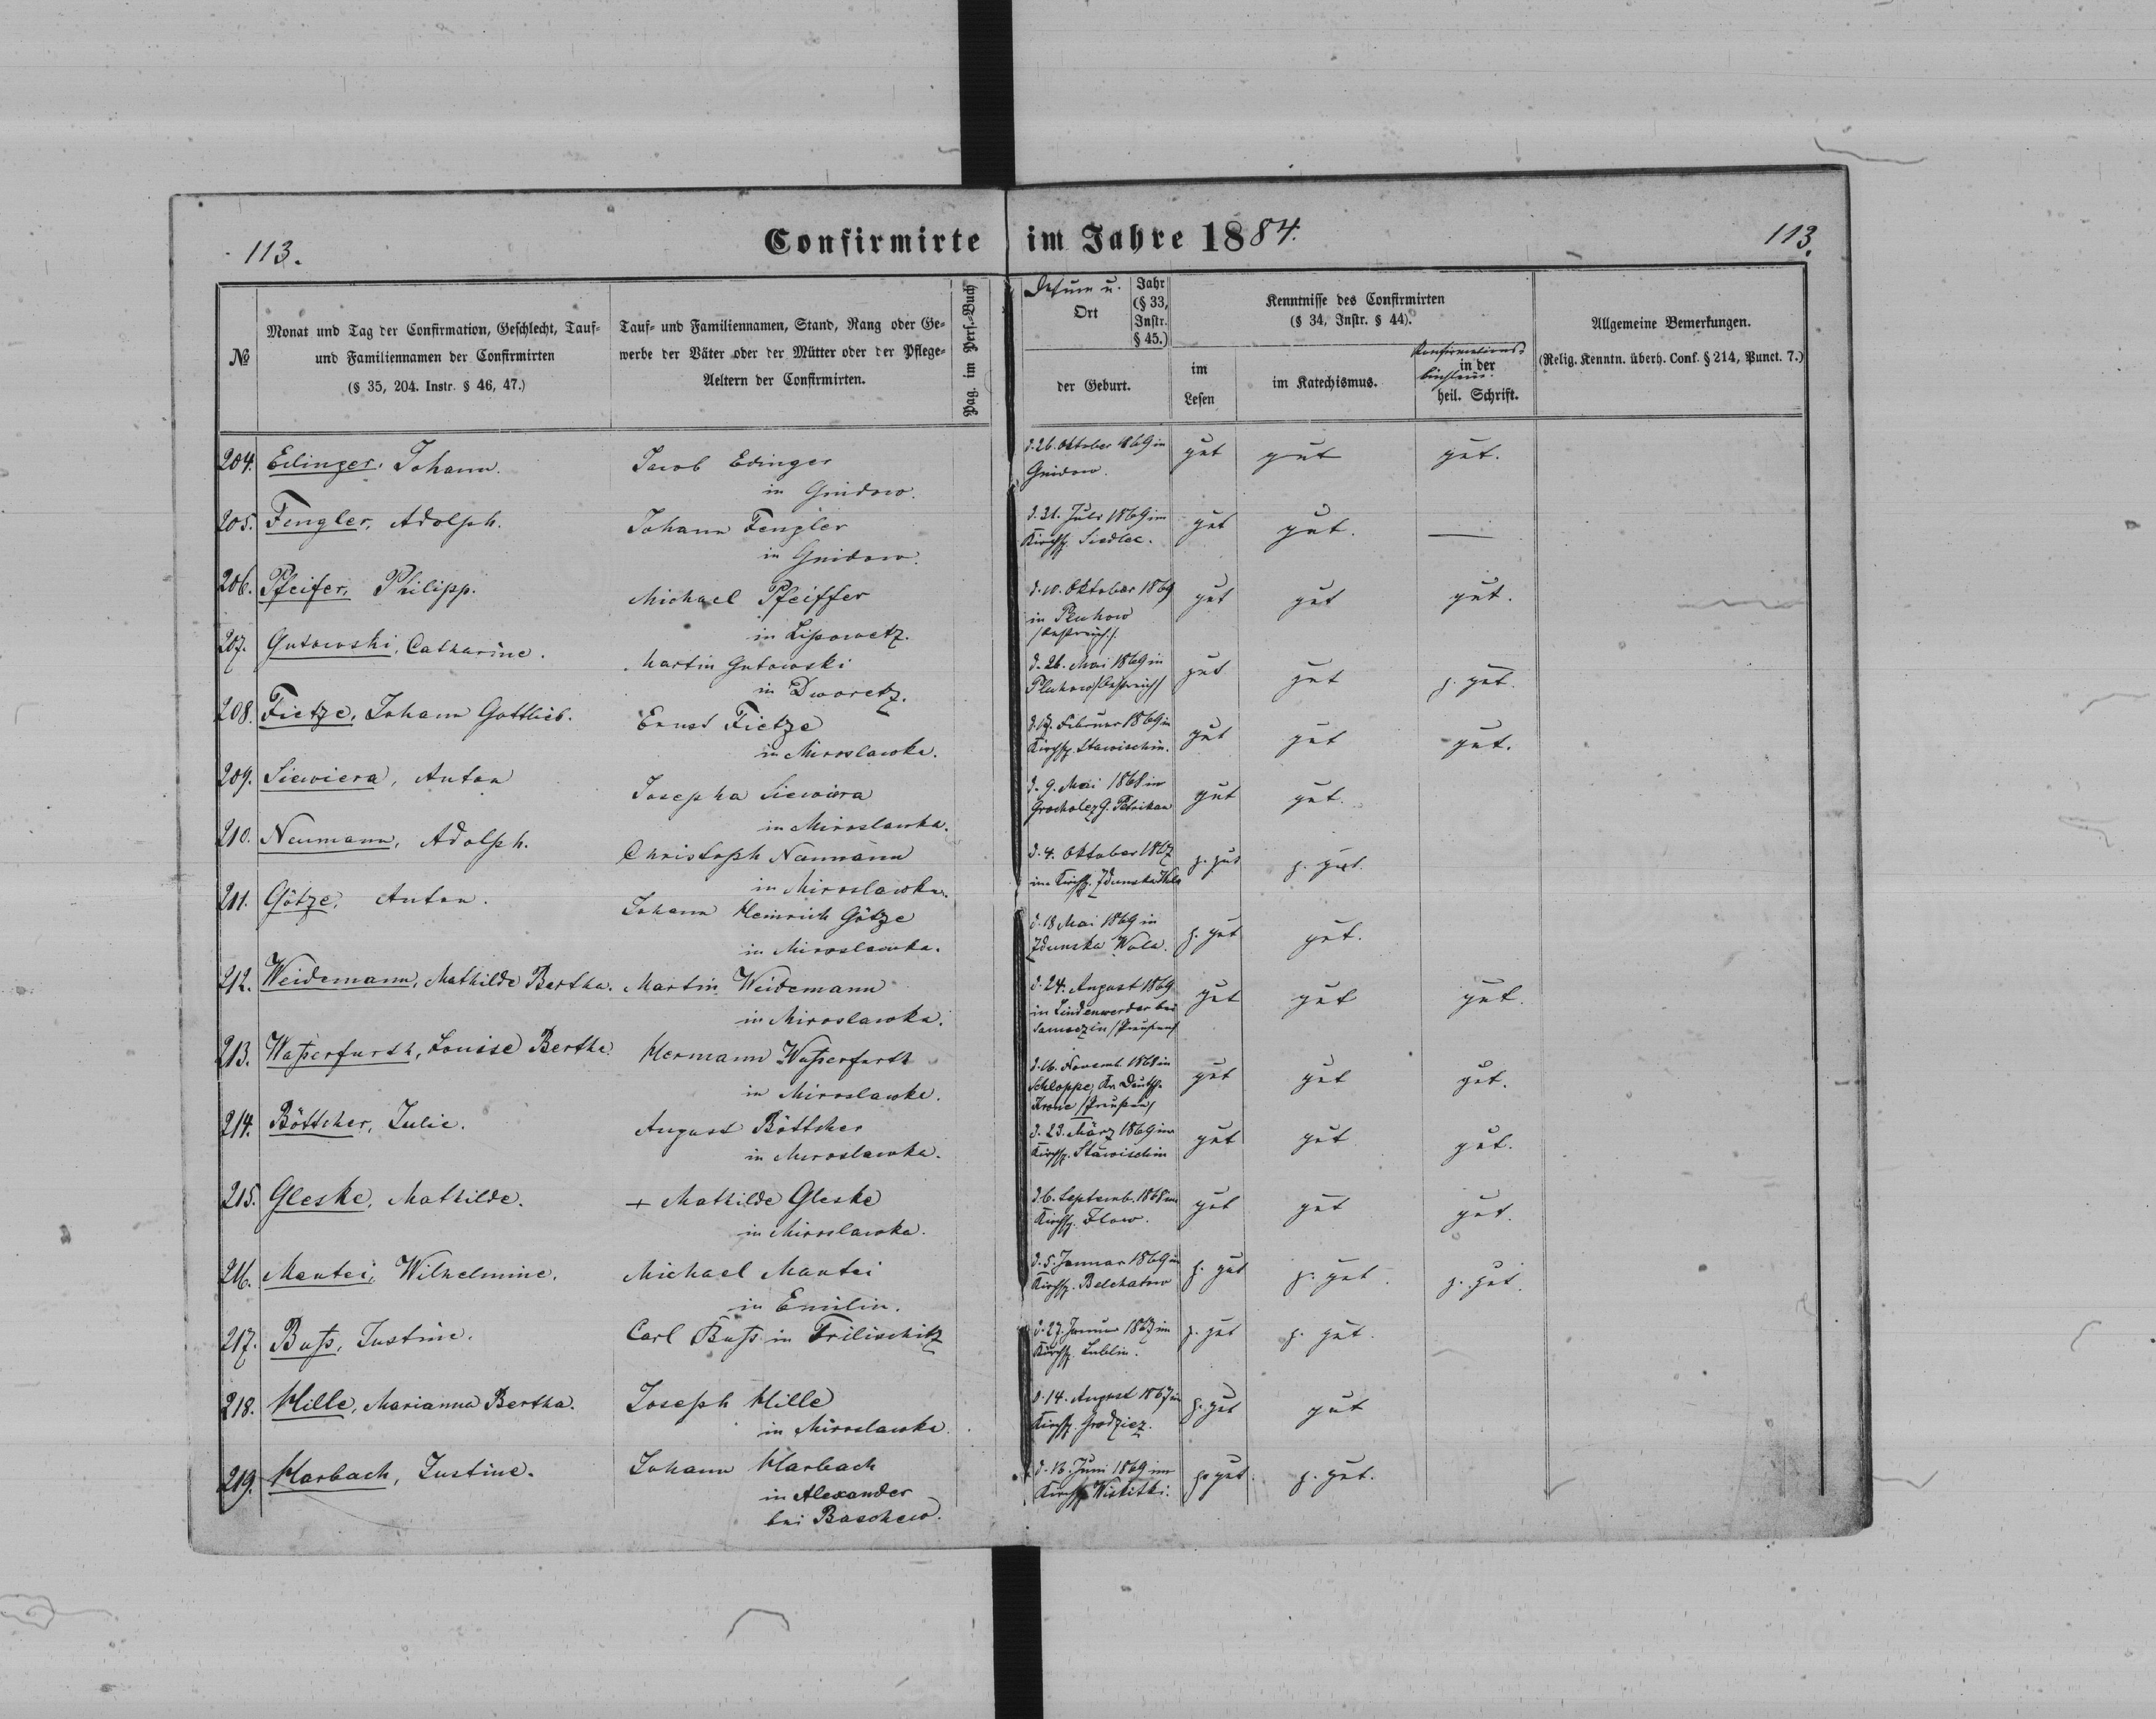 113.
Confirmirte im Jahre 1884.
113.
№
Monat und Tag der Confirmation, Geschlecht, Tauf-
und Familiennamen der Confirmirten
(§ 35, 204. Instr. § 46, 47.)
Tauf- und Familiennamen, Stand, Rang oder Ge-
werbe der Väter oder der Mütter oder der Pflege-
Aeltern der Confirmirten.
Pag. im Pers.-Buch
Datum u.
Ort
Jahr
(§ 33,
Instr.
§ 45.)
der Geburt.
Kenntnisse des Confirmirten
(§ 34, Instr. § 44).
im
Lesen
im Katechismus.
Konfirmations-
in der
büchlein.
heil. Schrift.
Allgemeine Bemerkungen.
(Relig. Kenntn. überh. Conf. § 214, Punct. 7.)
204. Edinger, Johann. Jacob Edinger d. 26. Oktober 1869 in gut gut gut.
in Gnidow. Gnidow.
205. Fengler, Adolph. Johann Fengler d. 31. Juli 1869 im gut gut. —
in Gnidow. Kirchsp. Siedlec.
206. Pfeifer, Philipp. Michael Pfeiffer d. 10. Oktober 1869 gut gut gut.
in Lipowetz. in Pluhow
/Oestreich/.
207. Gutowski, Catharine. Martin Gutowski d. 26. Mai 1869 in gut gut z. gut.
in Dworetz. Pluhow /Oestreich/
208. Fietze, Johann Gottlieb. Ernst Fietze Februar 1869 in gut gut gut.
in Miroslawka. Kirchsp. Stawischin.
209. Siewiera, Anton Josepha Siewiera d. 9. Mai 1868 in gut gut.
in Miroslawka. Grocholez G. Petrikau
210. Neumann, Adolph. Christoph Neumann d. 4. Oktober 1867 z. gut z. gut.
in Miroslawka. im Kirchsp. Zdunska Wola
211. Götze, Anton. Johann Heinrich Götze d. 18 Mai 1869 in z. gut gut.
in Miroslawka. Zdunska Wola.
212. Weidemann, Mathilde Bertha. Martin Weidemann d. 24. August 1869 gut gut gut.
in Miroslawka. in Lindenwerder bei
Samoczin /Preußen/
213. Waßerfurth, Louise Bertha. Hermann Waßerfurth d. 16. Novemb. 1868 in gut gut gut.
in Miroslawka. Schloppe, Kr. Deutsch-
Krone /Preußen/
214. Böttcher, Julie. August Böttcher d. 23. März 1869 im gut gut gut.
in Miroslawka. Kirchsp. Stawischin
215. Gleske, Mathilde. + Mathilde Gleske d. 6. Septemb. 1868 im gut gut gut.
in Miroslawka. Kirchsp. Ilow.
216. Mantei, Wilhelmine. Michael Mantei d. 5. Januar 1869 im z. gut z. gut. z. gut.
in Emilin. Kirchsp. Belchatow
217. Buß, Justine. Carl Buß in Trilischitz d. 27. Januar im z. gut z. gut.
Kirchsp. Lublin.
218. Hille, Marianna Bertha. Joseph Hille d. 14. August 1867 im z. gut gut
in Miroslawka Kirchsp. Grodziez.
219. Harbach, Justine. Johann Harbach d. 16. Juni 1869 im z. gut. z. gut.
in Alexander Kirchsp. Wiskitki.
bei Baschew.